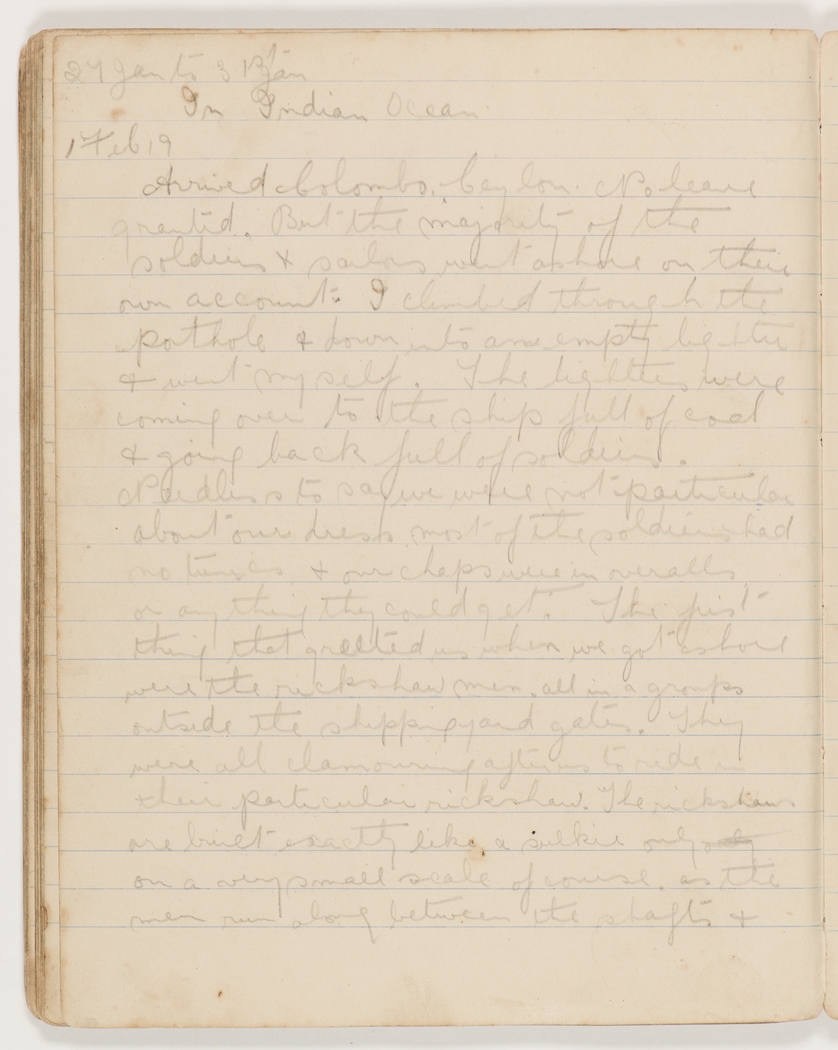 27 Jan to 31st Jan
In Indian Ocean
1 Feb 19
Arrived Colombo, Ceylon. No leave
granted. But the majority of the
soldiers & sailors went ashore on their
own account. I climbed through the
porthole & down into an empty lighter
& went myself. The lighters were
coming over to the ship full of coal
& going back full of soldiers.
Needless to say we were not particular
about our dress, most of the soldiers had
no tunics, & our chaps were in overalls
or anything they could get. The first
thing that greeted us when we got ashore
were the rickshaw men, all in a groups
outside the shipping yard gates. They
were all clamouring after us to ride in
their particular rickshaw. The rickshaws
are built exactly like a sulkie only
on a very small scale of course, as the
men run along between the shafts &